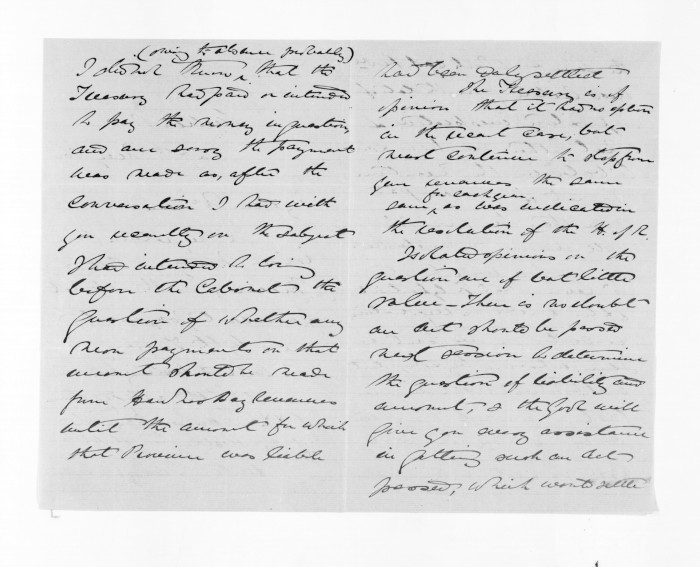 (owing to absence probably)
I did not know, that the
Treasury had paid or intended
to pay the money in question
and am sorry the payment
was made as, after the
conversation I had with
you recently on the subject
I had intended to bring
before the Cabinet the
question of whether any
more payments on that
account should be made
from Hawke's Bay revenues
until the amount for which
that Province was liable
had been duly settled
The Treasury is of
opinion that it had no option
in the recent case, but
must continue to stop from
your revenues the same
for each year
sum, as was indicated in
the resolution of the H. of R.
Isolated opinions on the
question are of but little
value – There is no doubt
an Act should be passed
next session to determine
the question of liability and
amount, & the Govt will
give you every assistance
in getting such an Act
passed, which would settle